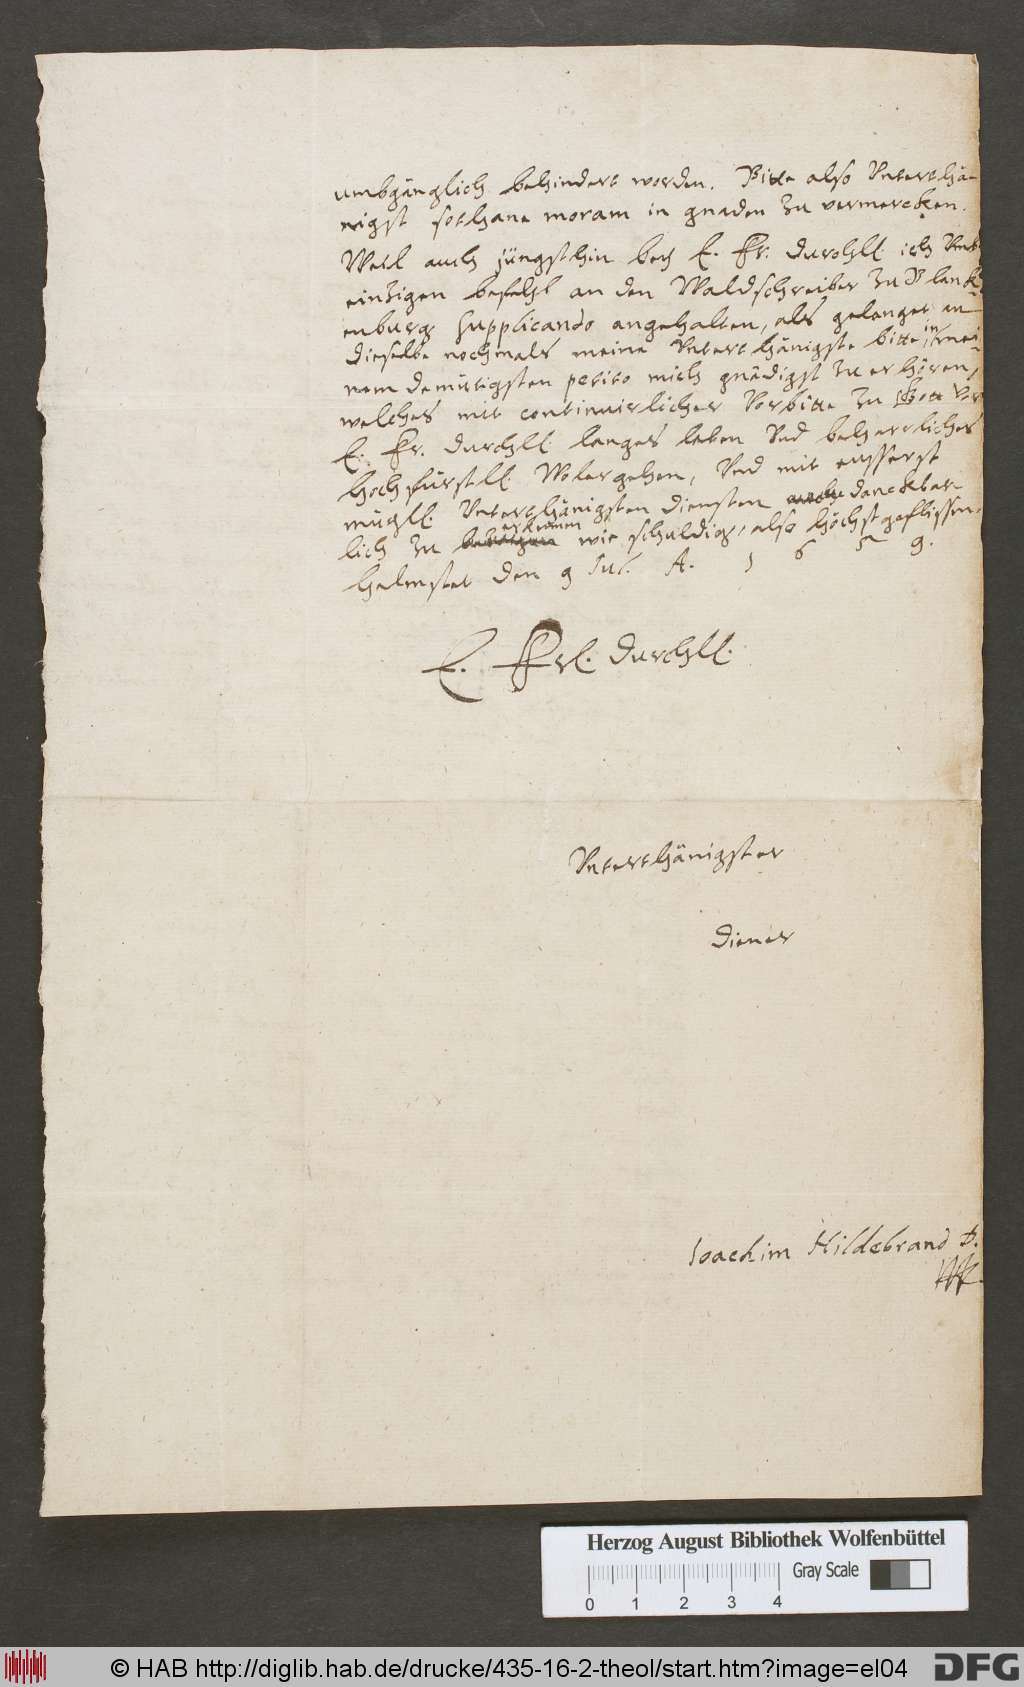 umbgänglich behindert worden. Bitte also Unterthä-
nigst sothane moram in gnaden zu vermercken.
Weil auch jüngsthin bey E. Fr. Durchll. ich Umb
einzigen befehl an den Waldschreiber zu Blanck-
enburg supplicando angehalten, als gelanget an
dieselbe nochmals meine Unterthänigste bitte, in mei-
nem demütigsten petito mich gnädigst zu erhören,
welches mit continuirlicher Vorbitte zu Gott vor
E. Fr. Durchll. langes leben Und beharrliches
hochfürstll. Wolergehen, Und mit eusserst
mügll. Unterthänigsten diensten danckbar-
lich zu erkennen wie schuldig, also höchstgeflissen.
Helmstet den 9 Jul. A. 1 6 5 9.
E. Frl. Durchll.
Unterthänigster
Diener
Joachim Hildebrand D.
Herzog August Bibliothek Wolfenbüttel
Gray Scale
0 1 2 3 4
© HAB http://diglib.hab.de/drucke/435-16-2-theol/start.htm?image=el04
DFG